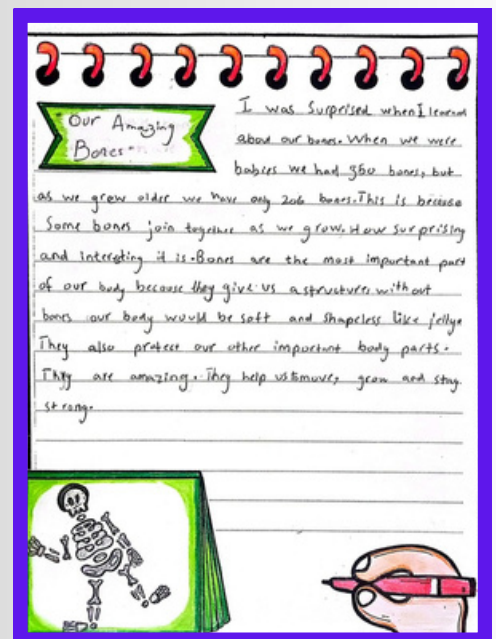 Our Amazing
Bones
I was surprised when I learned
about our bones. When we were
babies we had 350 bones, but
as we grow older we have only 206 bones. This is because
Some bones join together as we grow. How surprising
and interesting it is. Bones are the most important part
of our body because they give us a structures without
bones our body would be soft and shapeless like jelly.
They also protect our other important body parts.
They are amazing. They help us to move, grow and stay
strong.